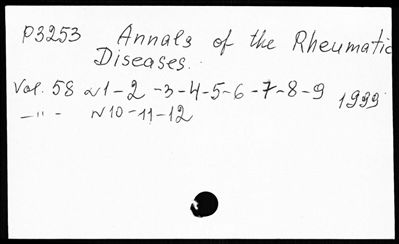 P3253 Annals of the Rheumatic
Diseases.
Vol. 58 N1-2-3-4-5-6-7-8-9 1999
-"- N10-11-12